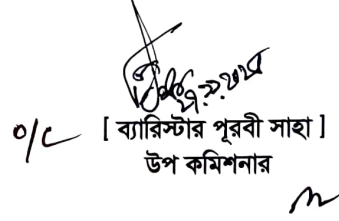 o/c [ ব্যারিস্টার পূরবী সাহা ]
উপ কমিশনার